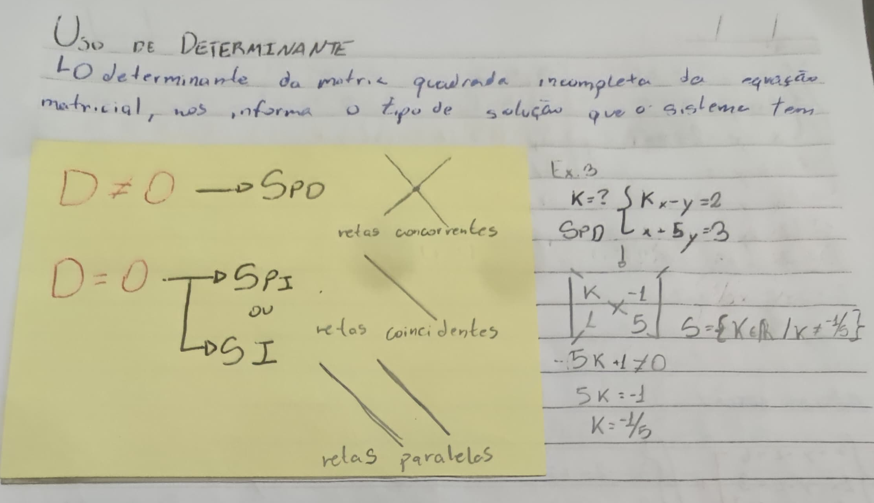 USO DE DETERMINANTE
↳ O determinante da matriz quadrada incompleta da equação
matricial, nos informa o tipo de solução que o sistema tem
D ≠ 0 → SPD
retas concorrentes
D = 0 → SPI
ou
retas coincidentes
→ SI
retas paralelas
Ex. 3
K=? { Kx-y=2
SPD x+5y=3
K -1
1 5
S={K∈R / K≠-1/5}
5K+1≠0
5K=-1
K=-1/5